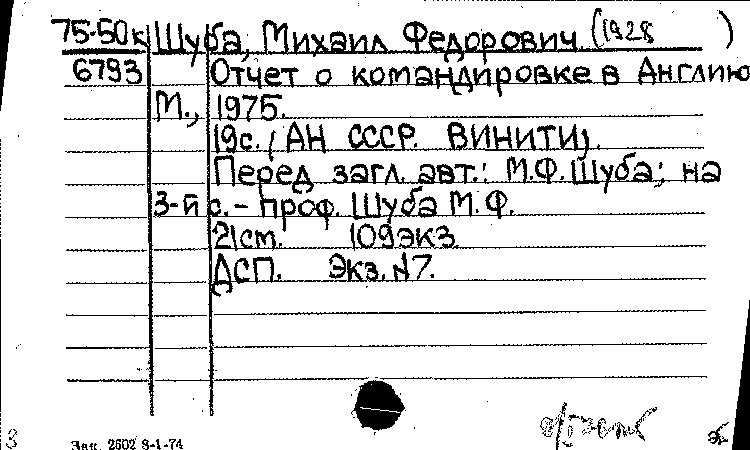 75-50к Шуба, Михаил Федорович (1928 )
6793 Отчет о командировке в Англию
М., 1975.
19с. (АН СССР. ВИНИТИ).
Перед загл. авт.: М.Ф.Шуба; на
3-й с. – проф. Шуба М.Ф.
21см. 109экз
ДСП. Экз.N7.
3 Зак. 2602 8-1-74